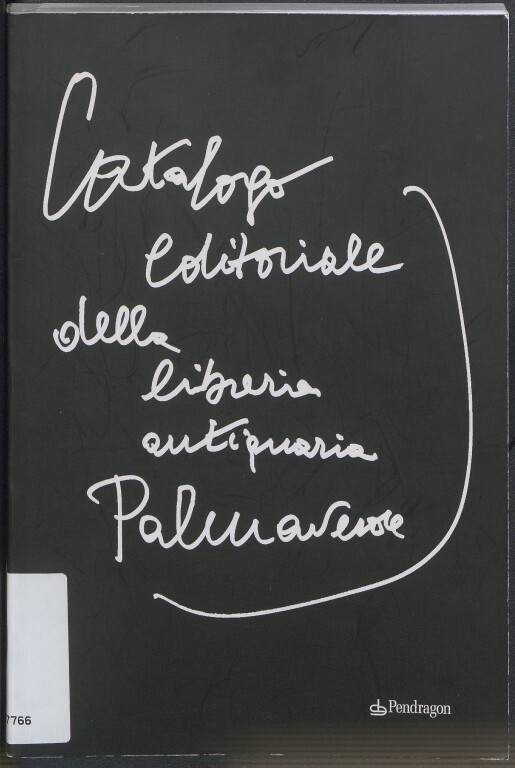 Catalogo
editoriale
della
libreria
antiquaria
Palmaverde
Pendragon
7766